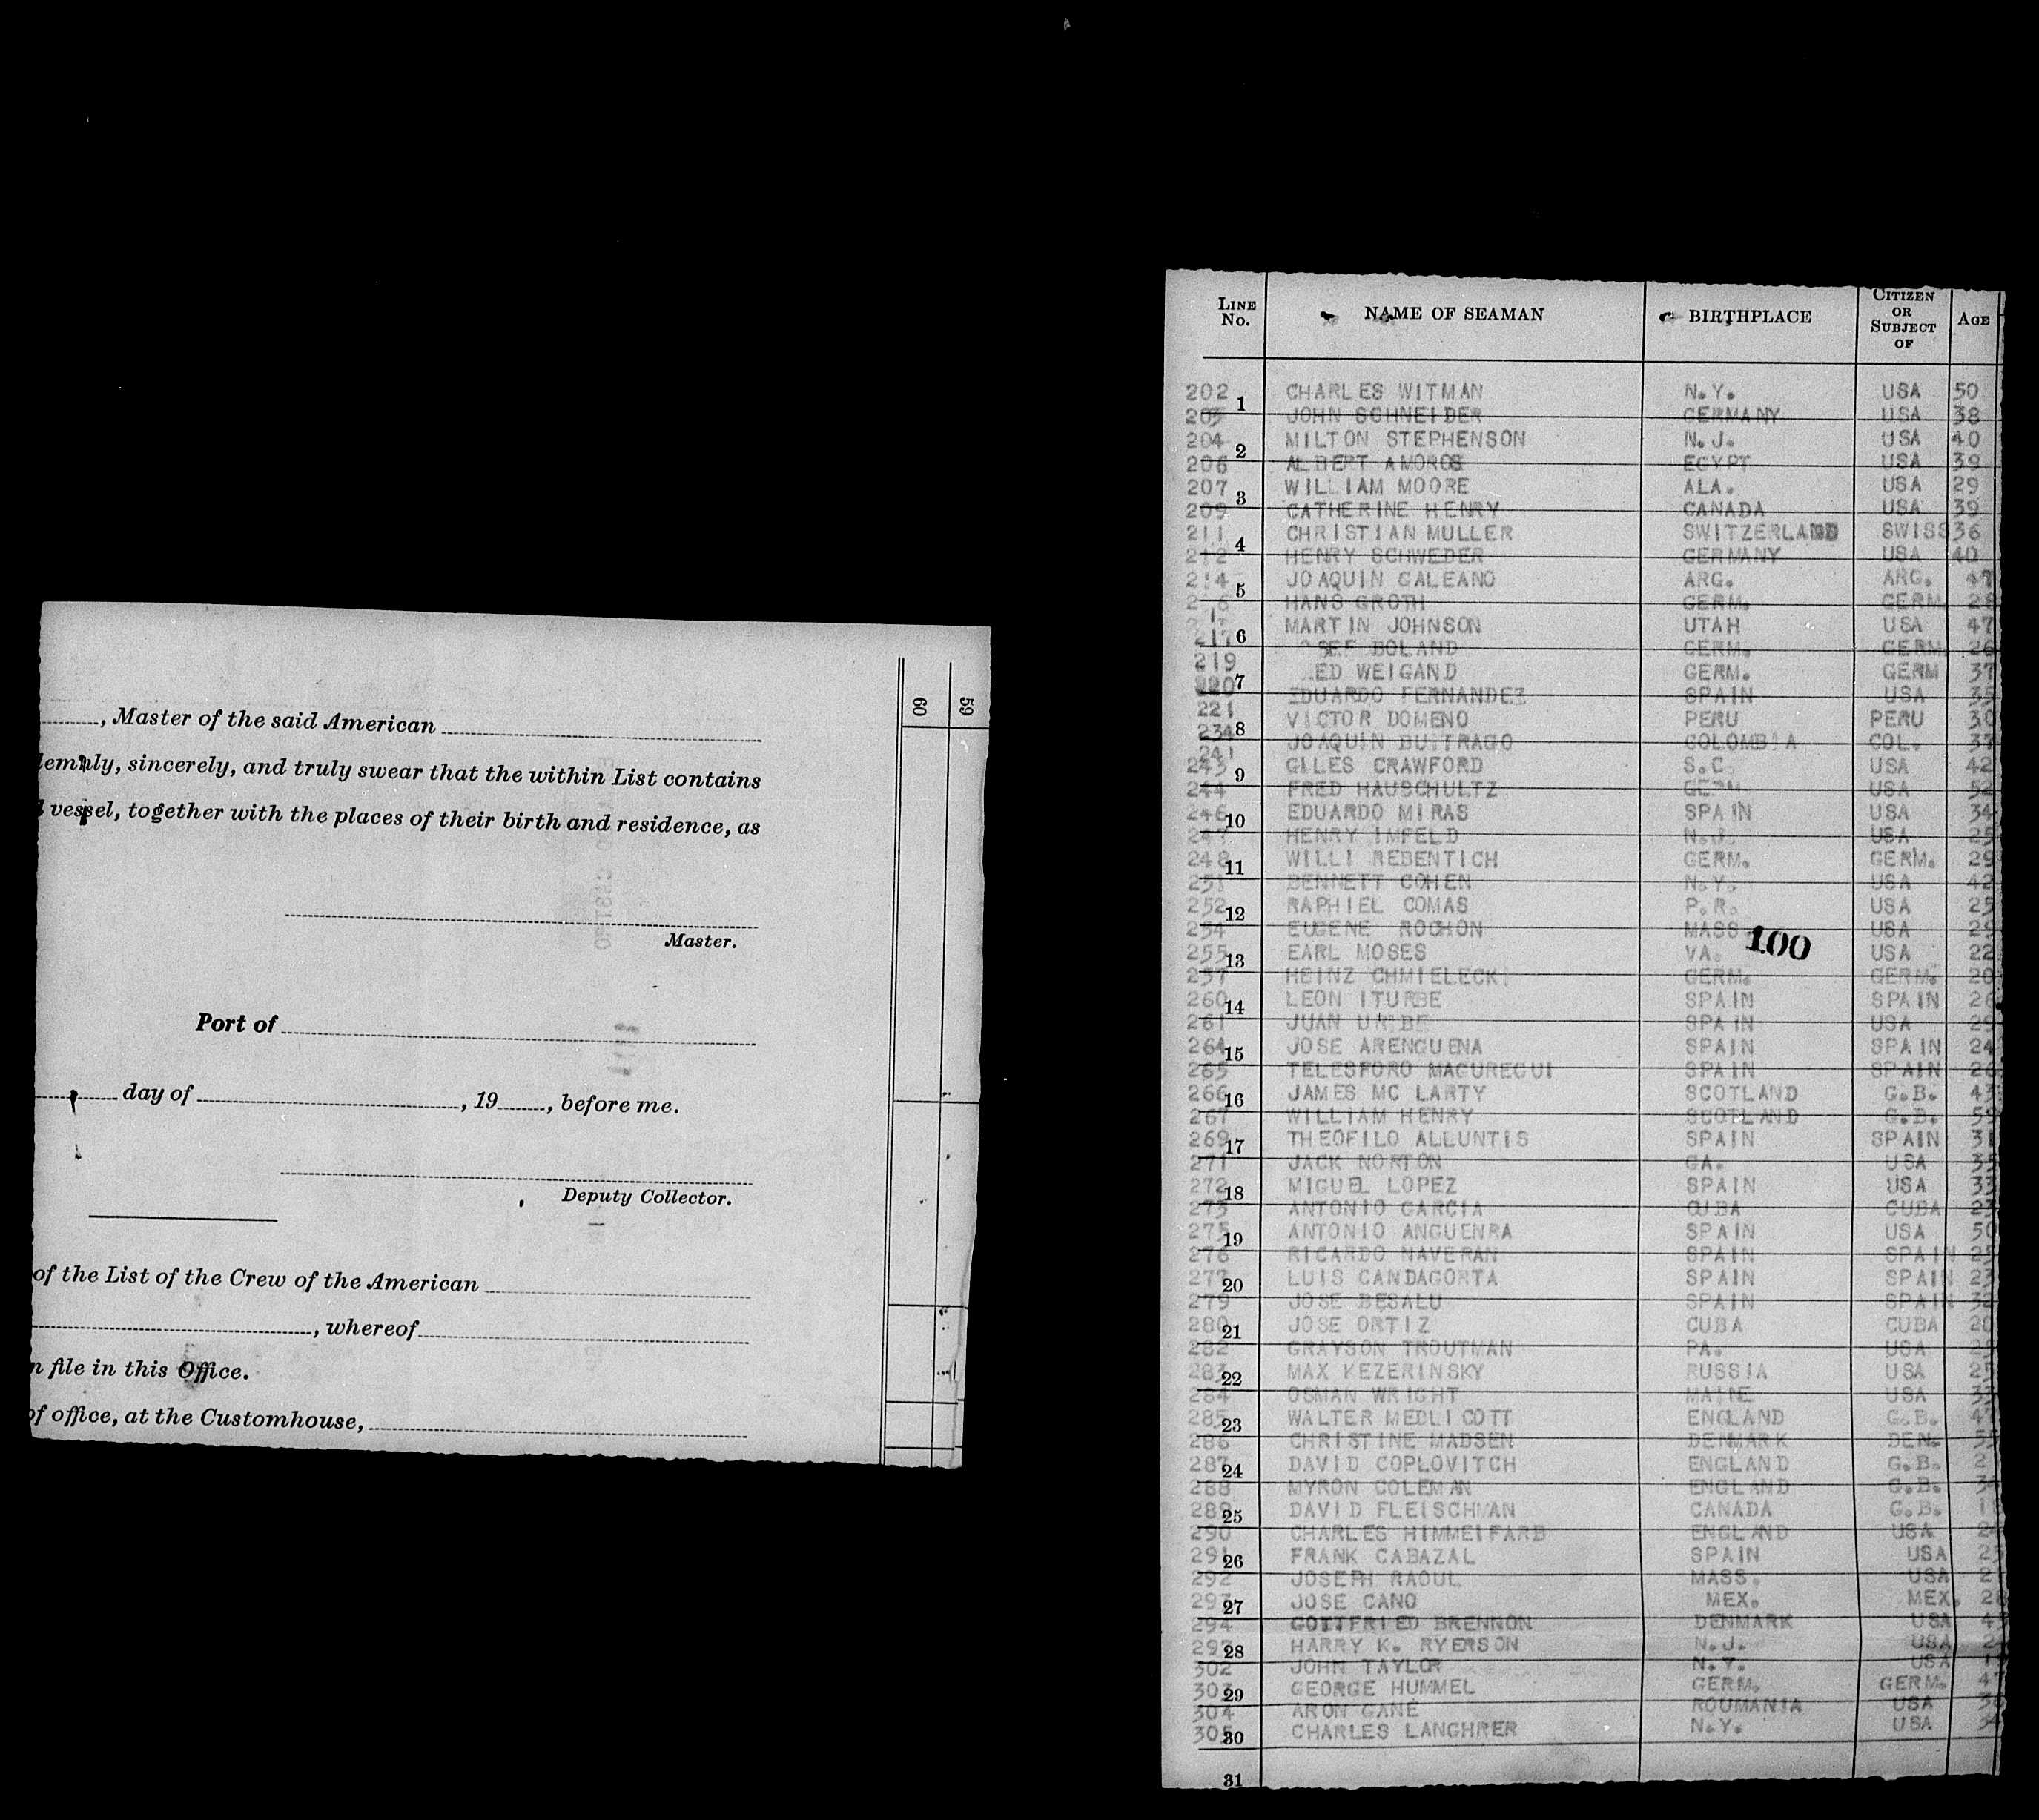 , Master of the said American
lemnly, sincerely, and truly swear that the within List contains
vessel, together with the places of their birth and residence, as
Master.
Port of
day of , 19 , before me.
Deputy Collector.
of the List of the Crew of the American
, whereof
n file in this Office.
of office, at the Customhouse,
60 59
LINE No. NAME OF SEAMAN BIRTHPLACE CITIZEN OR SUBJECT OF AGE
202 1 CHARLES WITMAN N.Y. USA 50
203 JOHN SCHNEIDER GERMANY USA 38
204 2 MILTON STEPHENSON N.J. USA 40
206 ALBERT AMOROS EGYPT USA 39
207 3 WILLIAM MOORE ALA. USA 29
209 CATHERINE HENRY CANADA USA 39
211 4 CHRISTIAN MULLER SWITZERLAND SWISS 36
212 HENRY SCHWEDER GERMANY USA 40
214 5 JOAQUIN GALEANO ARG. ARG. 47
HANS GROTH GERM. GERM. 28
MARTIN JOHNSON UTAH USA 47
217 6 SEF BOLAND GERM. GERM. 26
219 ED WEIGAND GERM. GERM 37
220 7 EDUARDO FERNANDEZ SPAIN USA 35
221 VICTOR DOMENO PERU PERU 30
234 8 JOAQUIN BUITRAGO COLOMBIA COL. 37
241
243 9 GILES CRAWFORD S.C. USA 42
244 FRED HAUSCHULTZ GERM. USA 52
246 10 EDUARDO MIRAS SPAIN USA 34
247 HENRY IMFELD N.J. USA 25
248 11 WILLI REBENTICH GERM. GERM. 29
251 BENNETT COHEN N.Y. USA 42
252 12 RAPHIEL COMAS P.R. USA 25
254 EUGENE ROCHON MASS USA 29
255 13 EARL MOSES VA. 100 USA 22
257 HEINZ CHMIELECKI GERM. GERM. 20
260 14 LEON ITURBE SPAIN SPAIN 26
261 JUAN URIBE SPAIN USA 29
264 15 JOSE ARENGUENA SPAIN SPAIN 24
265 TELESFORO MAGUREGUI SPAIN SPAIN 26
266 16 JAMES MC LARTY SCOTLAND G.B. 43
267 WILLIAM HENRY SCOTLAND G.B. 59
269 17 THEOFILO ALLUNTIS SPAIN SPAIN 31
271 JACK NORTON GA. USA 35
272 18 MIGUEL LOPEZ SPAIN USA 33
273 ANTONIO GARCIA CUBA CUBA 23
275 19 ANTONIO ANGUENRA SPAIN USA 50
276 RICARDO NAVERAN SPAIN SPAIN 25
277 20 LUIS CANDAGORTA SPAIN SPAIN 23
279 JOSE BESALU SPAIN SPAIN 32
280 21 JOSE ORTIZ CUBA CUBA 20
282 GRAYSON TROUTMAN PA. USA
283 22 MAX KEZERINSKY RUSSIA USA 25
284 OSMAN WRIGHT MAINE USA 33
285 23 WALTER MEDLICOTT ENGLAND G.B. 47
286 CHRISTINE MADSEN DENMARK DEN. 55
287 24 DAVID COPLOVITCH ENGLAND G.B. 2
288 MYRON COLEMAN ENGLAND G.B. 3
289 25 DAVID FLEISCHMAN CANADA G.B. 1
290 CHARLES HIMMELFARB ENGLAND USA 2
291 26 FRANK CABAZAL SPAIN USA 2
292 JOSEPH RAOUL MASS. USA 2
293 27 JOSE CANO MEX. MEX. 28
294 GOTTFRIED BRENNON DENMARK USA 4
297 28 HARRY K. RYERSON N.J. USA 2
302 JOHN TAYLOR N.Y. USA 1
303 29 GEORGE HUMMEL GERM. GERM. 4
304 ARON GANE ROUMANIA USA 3
305 30 CHARLES LANGHRER N.Y. USA 3
31